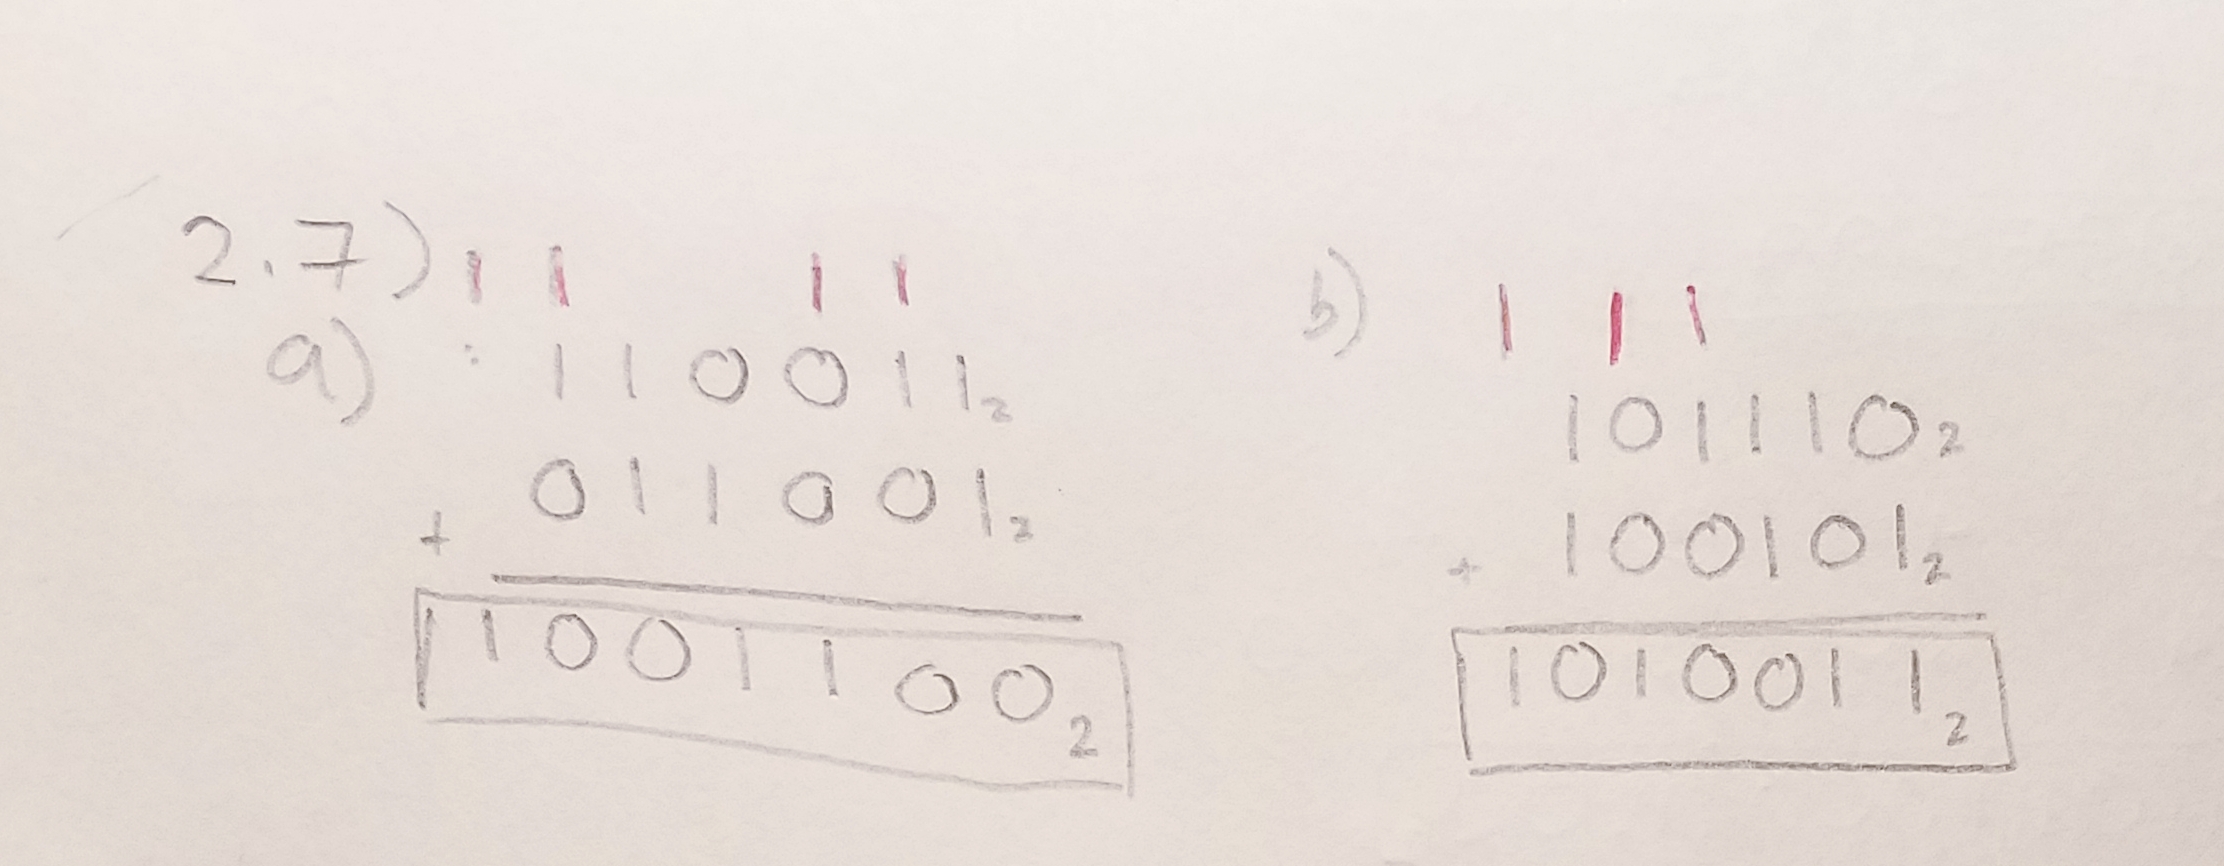 2.7) 1 1 1 1
a) 110011₂
+ 011001₂
1001100₂
b) 1 1 1
101110₂
+ 100101₂
1010011₂